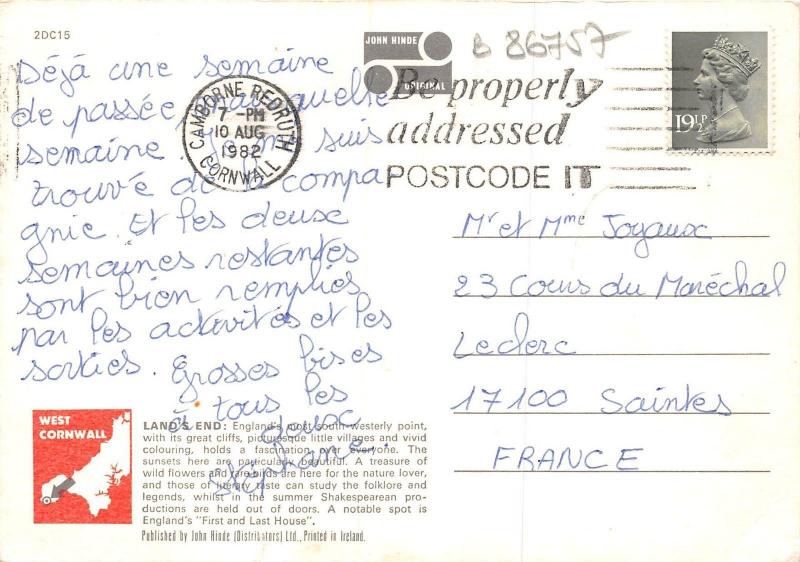 2DC15
B 86757
JOHN HINDE
ORIGINAL
CAMBORNE REDRUTH
7 - PM
10 AUG
1982
CORNWALL
Be properly
addressed
POSTCODE IT
19½P
Déjà une semaine
de passée, mais quelle
semaine. Je me suis
trouvé de la compa
gnie. Et les deux
semaines restantes
sont bien remplies
par les activités et les
sorties. Grosses bises
à tous les
deux
Stéphane.
Mr et Mme Joyaux
23 Cours du Maréchal
Leclerc
17100 Saintes
FRANCE
WEST
CORNWALL
LAND'S END: England's most south-westerly point,
with its great cliffs, picturesque little villages and vivid
colouring, holds a fascination over everyone. The
sunsets here are particularly beautiful. A treasure of
wild flowers and rare birds are here for the nature lover,
and those of literary taste can study the folklore and
legends, whilst in the summer Shakespearean pro-
ductions are held out of doors. A notable spot is
England's "First and Last House".
Published by John Hinde (Distributors) Ltd., Printed in Ireland.